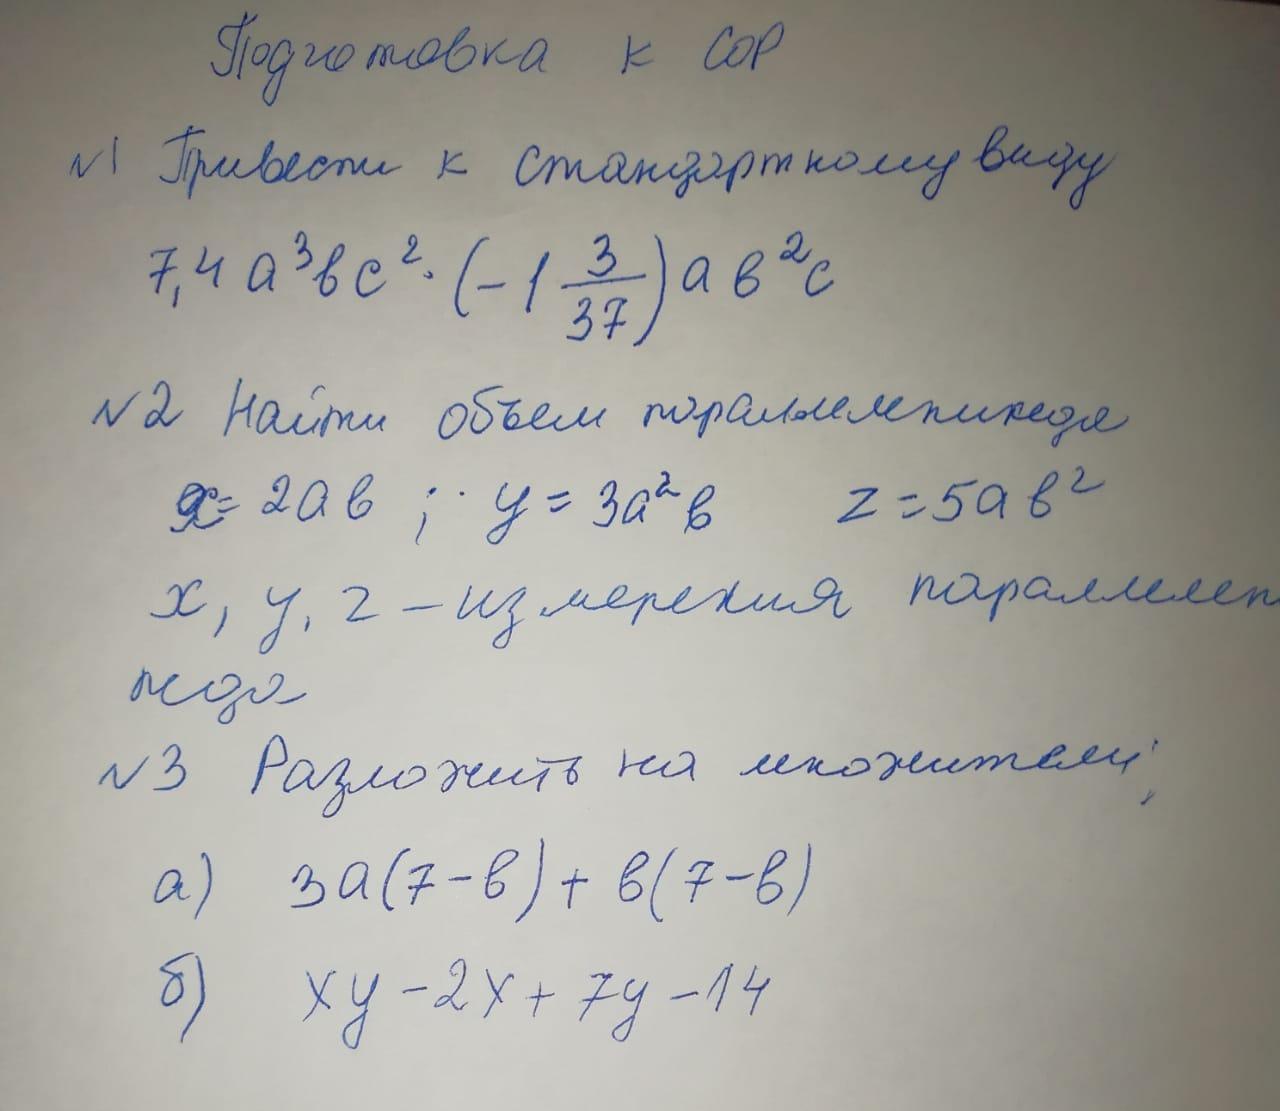 Подготовка к СОР
№1 Привести к стандартному виду
7,4 a³bc² · (-1 3/37) ab²c
№2 Найти объем параллелепипеда
x = 2ab ; y = 3a²b z = 5ab²
x, y, z – измерения параллелеп
педа
№3 Разложить на множители;
а) 3a(7-b) + b(7-b)
б) xy - 2x + 7y - 14